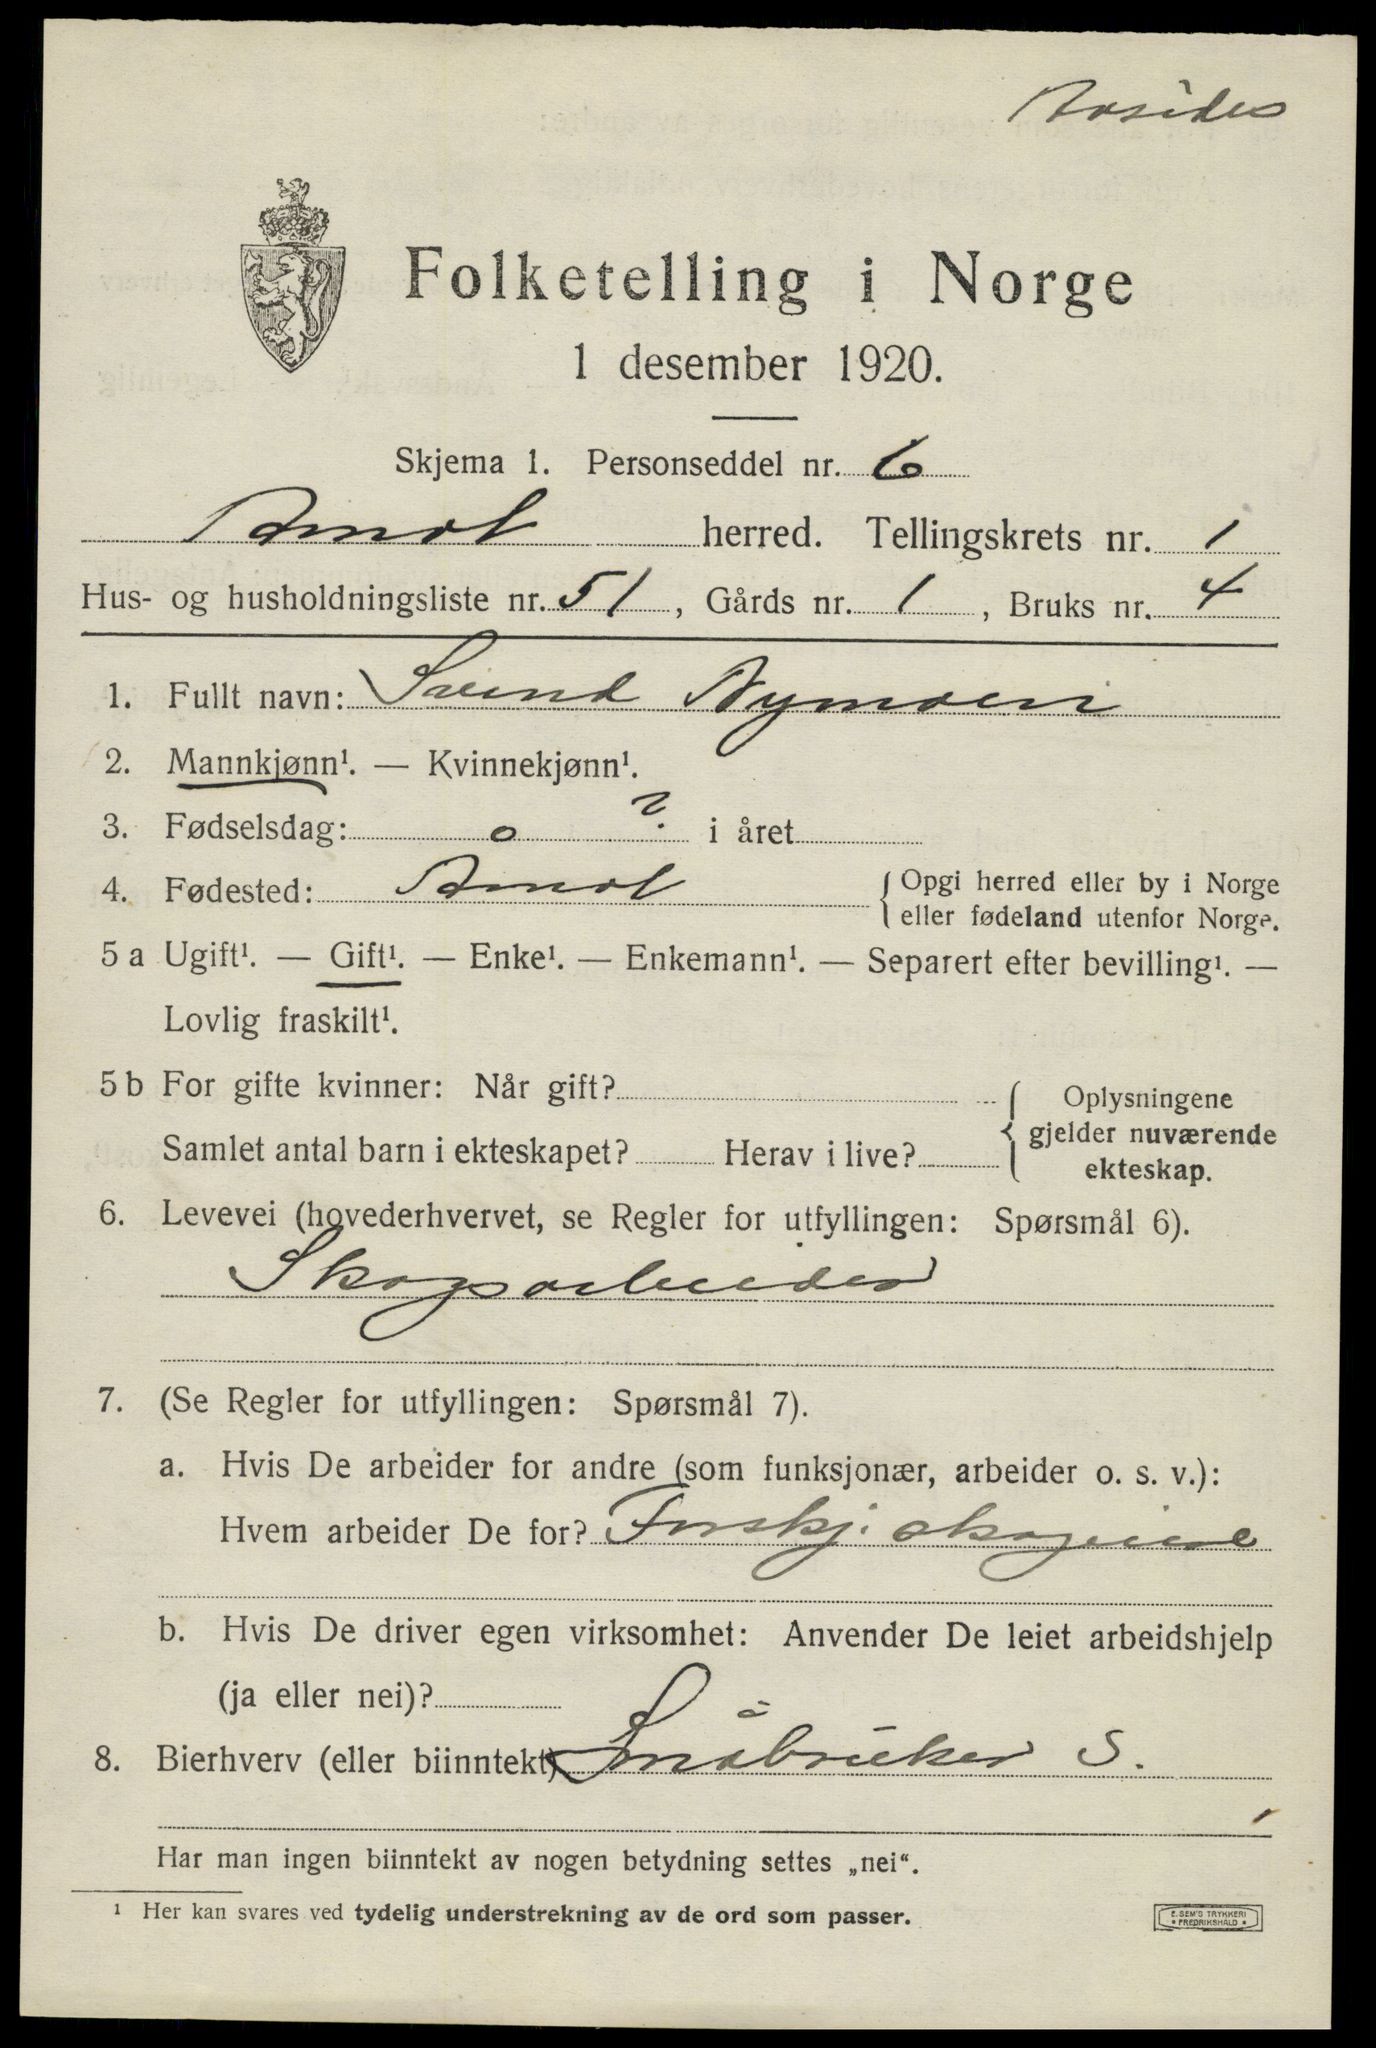 Folketelling i Norge
1 desember 1920.
Skjema 1. Personseddel nr. 6
Amot herred. Tellingskrets nr. 1
Hus- og husholdningsliste nr. 51, Gårds nr. 1, Bruks nr. 4
1. Fullt navn: Svend Nymoen
2. Mannkjønn¹. — Kvinnekjønn¹.
3. Fødselsdag: o ? i året
4. Fødested: Amot { Opgi herred eller by i Norge
eller fødeland utenfor Norge.
5 a Ugift¹. — Gift¹. — Enke¹. — Enkemann¹. — Separert efter bevilling¹. —
Lovlig fraskilt¹.
5 b For gifte kvinner: Når gift? { Oplysningene
gjelder nuværende
Samlet antal barn i ekteskapet? Herav i live?
ekteskap.
6. Levevei (hovederhvervet, se Regler for utfyllingen: Spørsmål 6).
Skogsarbeider
7. (Se Regler for utfyllingen: Spørsmål 7).
a. Hvis De arbeider for andre (som funksjonær, arbeider o. s. v.):
Hvem arbeider De for? Forskj.
b. Hvis De driver egen virksomhet: Anvender De leiet arbeidshjelp
(ja eller nei)?
8. Bierhverv (eller biinntekt) Småbruker S.
Har man ingen biinntekt av nogen betydning settes „nei“.
¹ Her kan svares ved tydelig understrekning av de ord som passer.
E. SEM'S TRYKKERI
FREDRIKSHALD